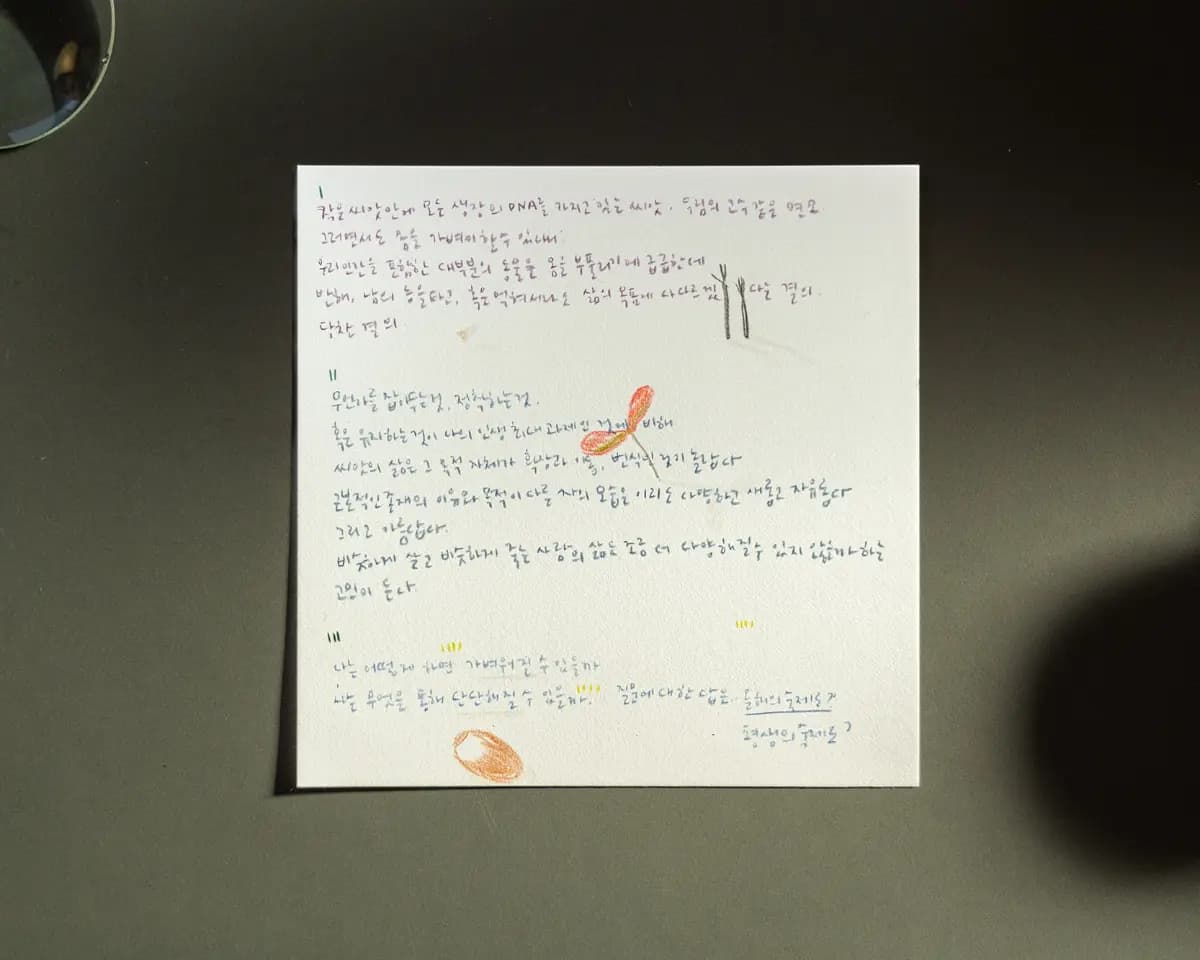 I
작은 씨앗안에 모든 생장의 DNA를 가지고 있는 씨앗. 두림의 고수같은 면모
그러면서도 몸을 가벼이할수 있나니
우리인간을 포함한 대부분의 동물은 몸을 부풀리기에 급급한데
반해, 남의 등을타고, 혹은 먹혀서라도 삶의 목표에 다다르겠 다는 결의.
당찬 결의
II
무언가를 잡아두는것, 정착하는것.
혹은 유지하는것이 나의 인생 최대 과제인 것에 비해
씨앗의 삶은 그 목적 자체가 확장과 이동, 번식인 것이 놀랍다
근본적인존재의 이유와 목적이 다른 자의 모습은 이리도 다양하고 새롭고 자유롭다
그리고 아름답다.
비슷하게 살고 비슷하게 죽는 사람의 삶도 조금 더 다양해질수 있지 않을까 하는
고민이 든다
III
나는 어떻게 하면 가벼워질 수 있을까
나는 무엇을 통해 단단해질 수 있을까. 질문에 대한 답은. 올해의 숙제로?
평생의 숙제로?